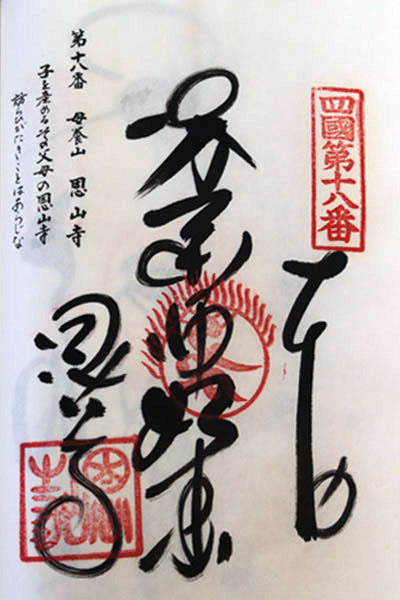 四國第十八番
薬師如来
恩山寺
第十八番 母養山 恩山寺
子を産めるその父母の恩山寺
訪らひがたきことはあらじな